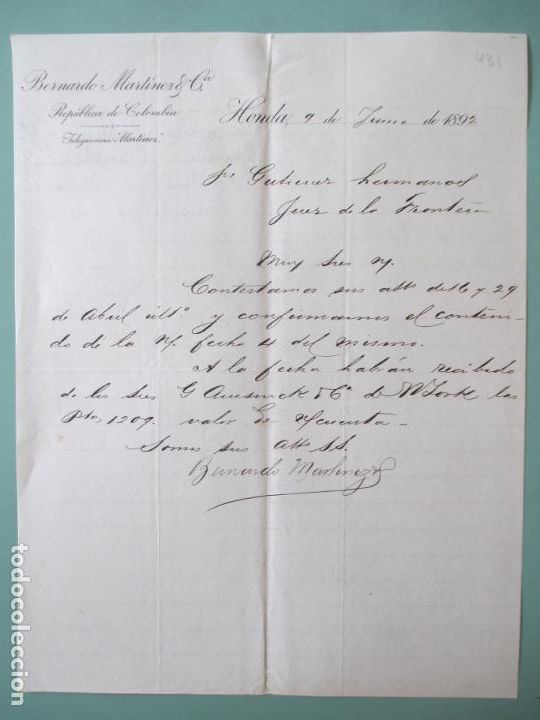 431
Bernardo Martínez & Cª
República de Colombia
Telegramas "Martínez"
Honda, 9 de Junio de 1892
Sres Gutierrez hermanos
Jerez de la Frontera
Muy Sres n/.
Contestamos sus atts de 16 y 29
de Abril últº y confirmamos el conteni-
do de la n/. fecha 4 del mismo.
A la fecha habrán recibido
de los Sres G Amsinck & Cª de N York las
Ptas 1209. valor de n/cuenta.
Somos sus atts S.S.
Bernardo Martinez & Cª
todocoleccion